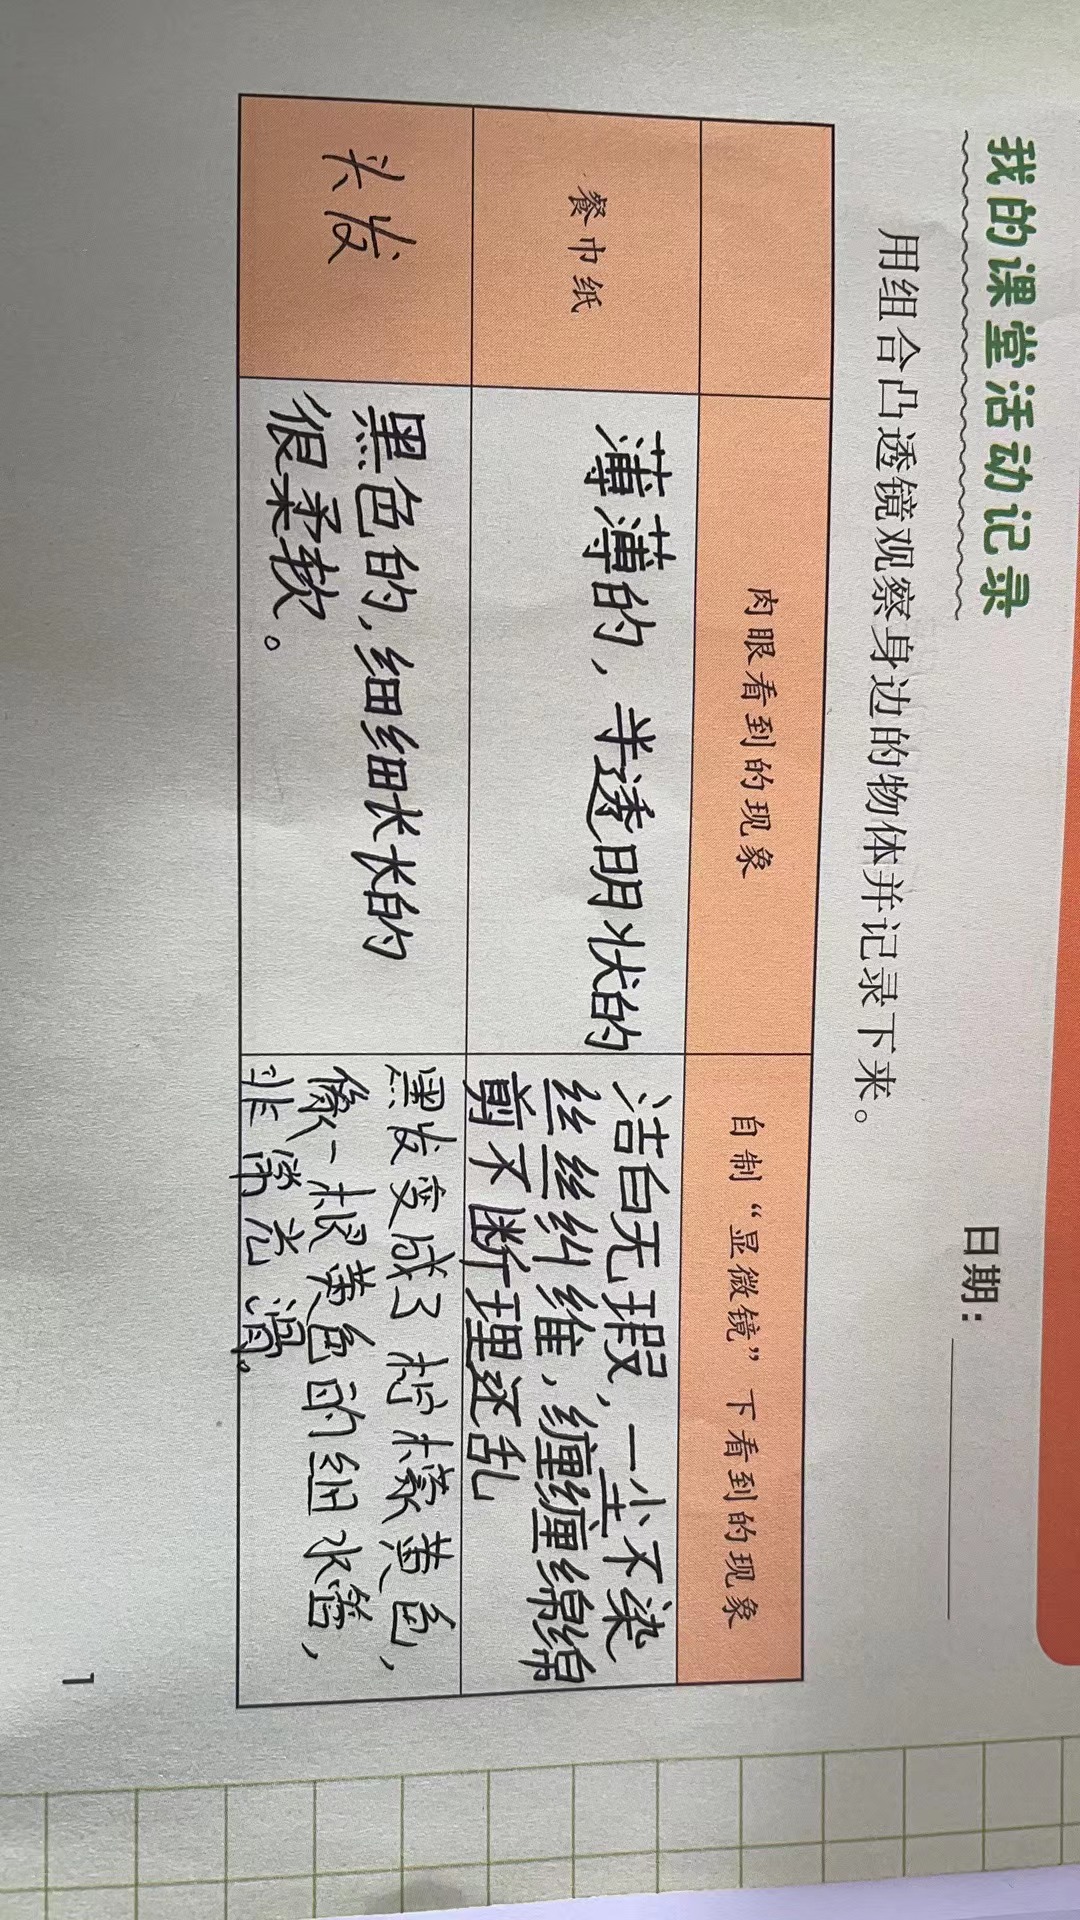 我的课堂活动记录
日期：
用组合凸透镜观察身边的物体并记录下来。
肉眼看到的现象
自制“显微镜”下看到的现象
餐巾纸
薄薄的，半透明状的
洁白无瑕，一尘不染
丝丝纠维，缠缠绵绵
剪不断理还乱
头发
黑色的，细细长长的
很柔软。
黑发变成了柠檬黄色，
像一根黄色的细水管，
非常光滑。
1